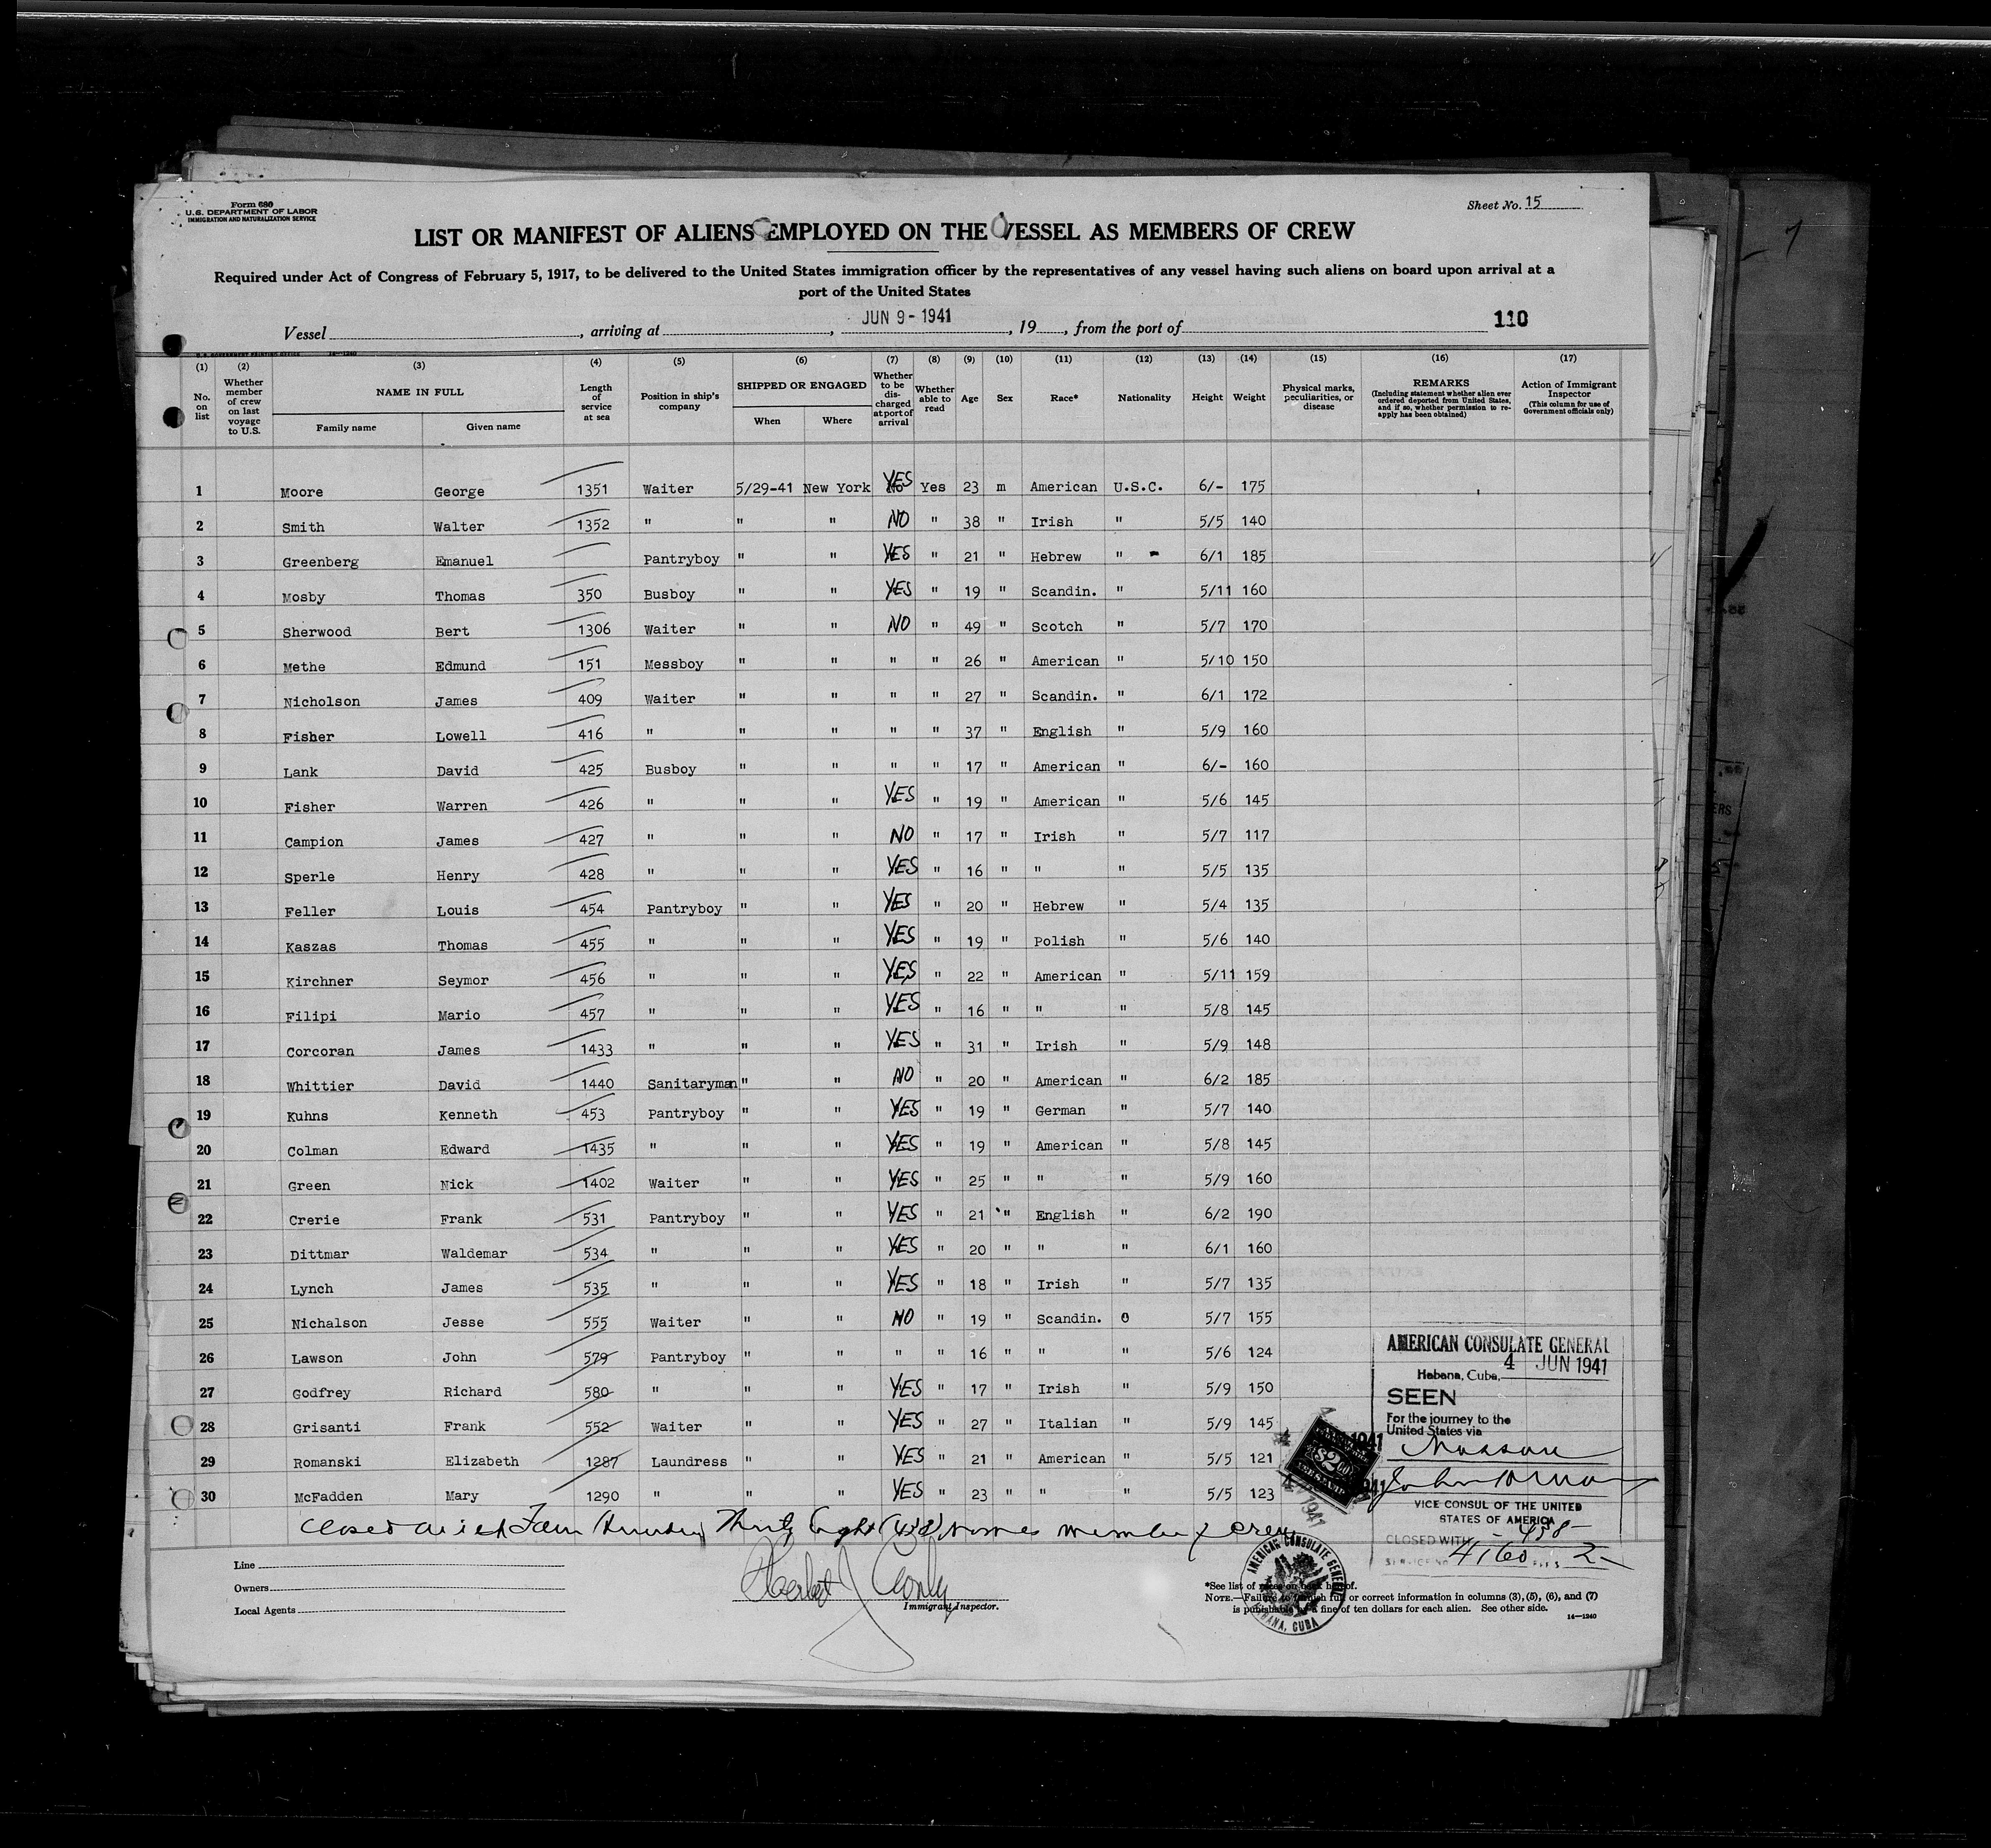 Form 680
U.S. DEPARTMENT OF LABOR
IMMIGRATION AND NATURALIZATION SERVICE
Sheet No. 15
LIST OR MANIFEST OF ALIENS EMPLOYED ON THE VESSEL AS MEMBERS OF CREW
Required under Act of Congress of February 5, 1917, to be delivered to the United States immigration officer by the representatives of any vessel having such aliens on board upon arrival at a
port of the United States
Vessel , arriving at , JUN 9 - 1941 , 19 , from the port of 110
(1) No. on list
(2) Whether member of crew on last voyage to U.S.
(3) NAME IN FULL Family name Given name
(4) Length of service at sea
(5) Position in ship's company
(6) SHIPPED OR ENGAGED When Where
(7) Whether to be discharged at port of arrival
(8) Whether able to read
(9) Age
(10) Sex
(11) Race*
(12) Nationality
(13) Height
(14) Weight
(15) Physical marks, peculiarities, or disease
(16) REMARKS (Including statement whether alien ever ordered deported from United States, and if so, whether permission to re-apply has been obtained)
(17) Action of Immigrant Inspector (This column for use of Government officials only)
1 Moore George 1351 Waiter 5/29-41 New York YES Yes 23 m American U.S.C. 6/- 175
2 Smith Walter 1352 " " " NO " 38 " Irish " 5/5 140
3 Greenberg Emanuel Pantryboy " " YES " 21 " Hebrew " - 6/1 185
4 Mosby Thomas 350 Busboy " " YES " 19 " Scandin. " 5/11 160
5 Sherwood Bert 1306 Waiter " " NO " 49 " Scotch " 5/7 170
6 Methe Edmund 151 Messboy " " " " 26 " American " 5/10 150
7 Nicholson James 409 Waiter " " " " 27 " Scandin. " 6/1 172
8 Fisher Lowell 416 " " " " " 37 " English " 5/9 160
9 Lank David 425 Busboy " " " " 17 " American " 6/- 160
10 Fisher Warren 426 " " " YES " 19 " American " 5/6 145
11 Campion James 427 " " " NO " 17 " Irish " 5/7 117
12 Sperle Henry 428 " " " YES " 16 " " " 5/5 135
13 Feller Louis 454 Pantryboy " " YES " 20 " Hebrew " 5/4 135
14 Kaszas Thomas 455 " " " YES " 19 " Polish " 5/6 140
15 Kirchner Seymor 456 " " " YES " 22 " American " 5/11 159
16 Filipi Mario 457 " " " YES " 16 " " " 5/8 145
17 Corcoran James 1433 " " " YES " 31 " Irish " 5/9 148
18 Whittier David 1440 Sanitaryman " " NO " 20 " American " 6/2 185
19 Kuhns Kenneth 453 Pantryboy " " YES " 19 " German " 5/7 140
20 Colman Edward 1435 " " " YES " 19 " American " 5/8 145
21 Green Nick 1402 Waiter " " YES " 25 " " " 5/9 160
22 Crerie Frank 531 Pantryboy " " YES " 21 " English " 6/2 190
23 Dittmar Waldemar 534 " " " YES " 20 " " " 6/1 160
24 Lynch James 535 " " " YES " 18 " Irish " 5/7 135
25 Nichalson Jesse 555 Waiter " " NO " 19 " Scandin. 5/7 155
26 Lawson John 579 Pantryboy " " " " 16 " " " 5/6 124
27 Godfrey Richard 580 " " " YES " 17 " Irish " 5/9 150
28 Grisanti Frank 552 Waiter " " YES " 27 " Italian " 5/9 145
29 Romanski Elizabeth 1287 Laundress " " YES " 21 " American " 5/5 121
30 McFadden Mary 1290 " " " YES " 23 " " " 5/5 123
Closed Four Hundred Thirty Eight (438) names members crew
AMERICAN CONSULATE GENERAL
Habana, Cuba, 4 JUN 1941
SEEN
For the journey to the
United States via
VICE CONSUL OF THE UNITED
STATES OF AMERICA
CLOSED WITH - 438 -
SERVICE No. 4160 2-
$2.00
AMERICAN CONSULATE GENERAL
HABANA, CUBA
Line
Owners
Local Agents
Immigrant Inspector.
*See list of races on back hereof.
NOTE.—Failure to furnish full or correct information in columns (3), (5), (6), and (7)
is punishable by a fine of ten dollars for each alien. See other side.
14—1240